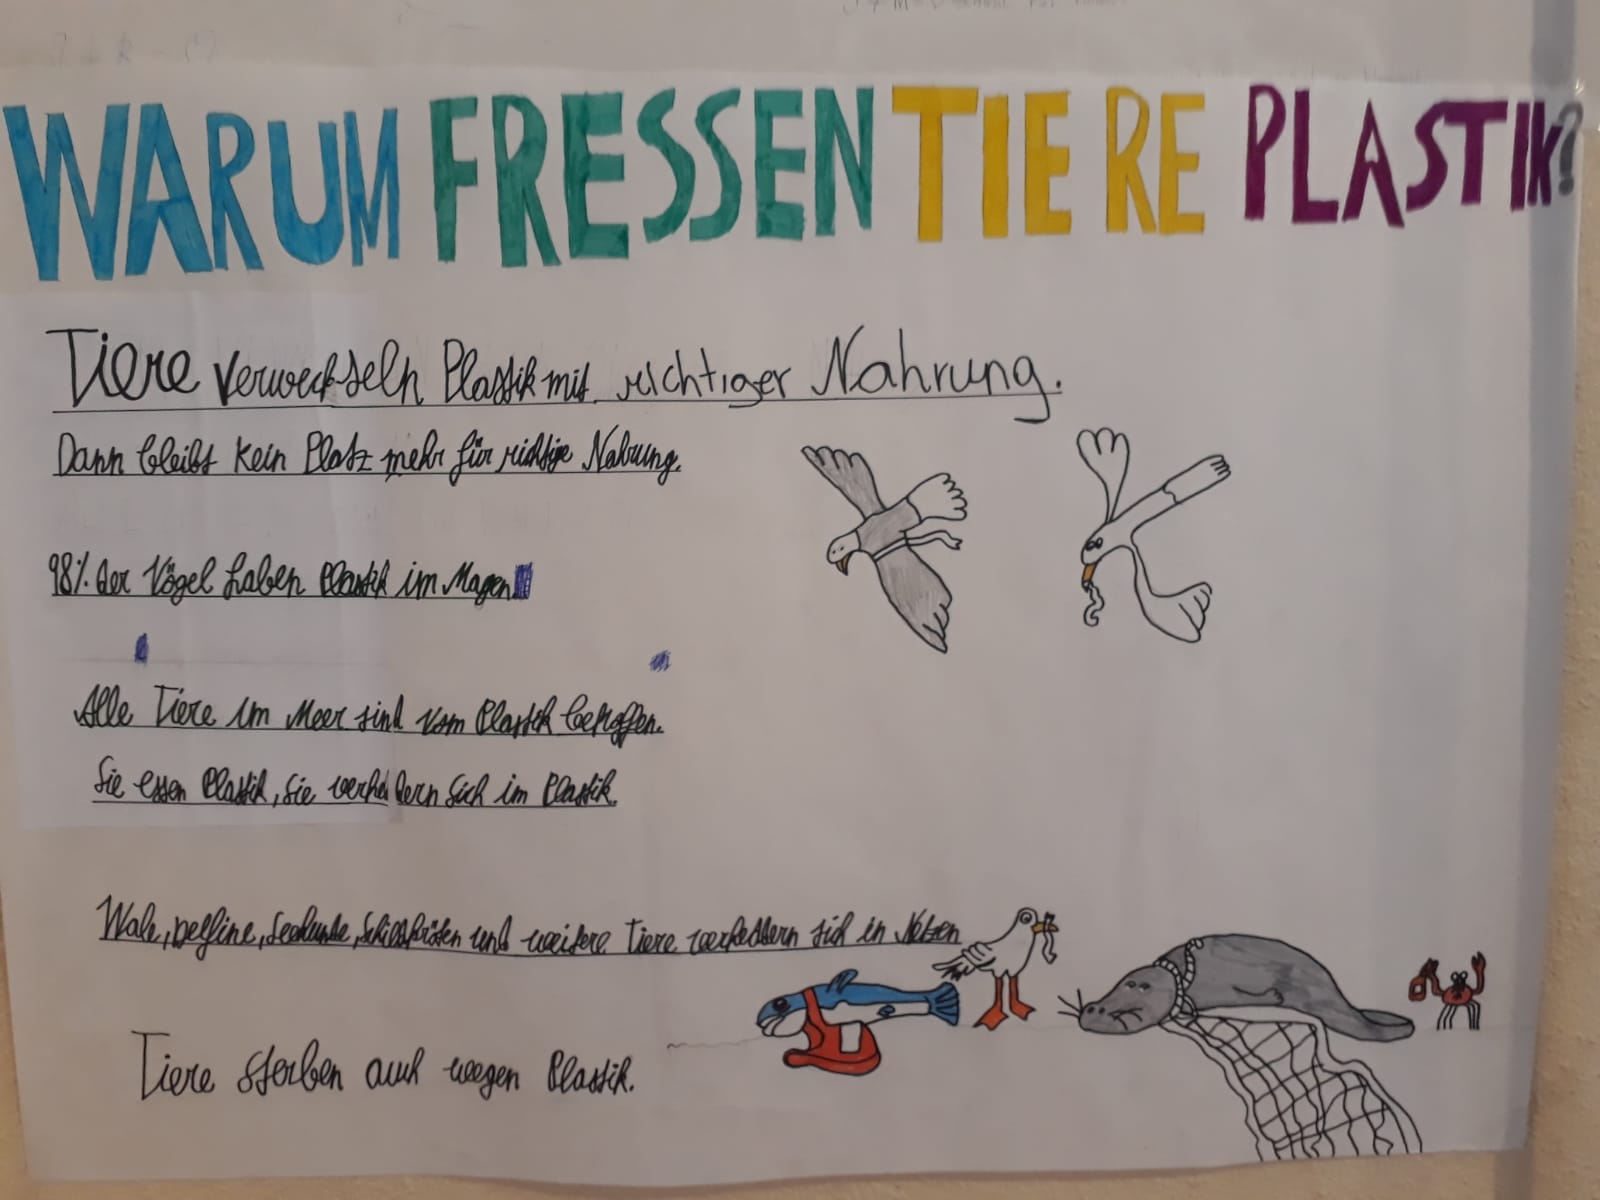 WARUM FRESSEN TIERE PLASTIK?
Tiere verwechseln Plastik mit richtiger Nahrung.
Dann bleibt kein Platz mehr für richtige Nahrung.
98% der Vögel haben Plastik im Magen
Alle Tiere im Meer sind vom Plastik betroffen.
Sie essen Plastik, sie verheddern sich im Plastik.
Wale, Delfine, Seehunde, Schildkröten und weitere Tiere verheddern sich in Netzen
Tiere sterben auch wegen Plastik.